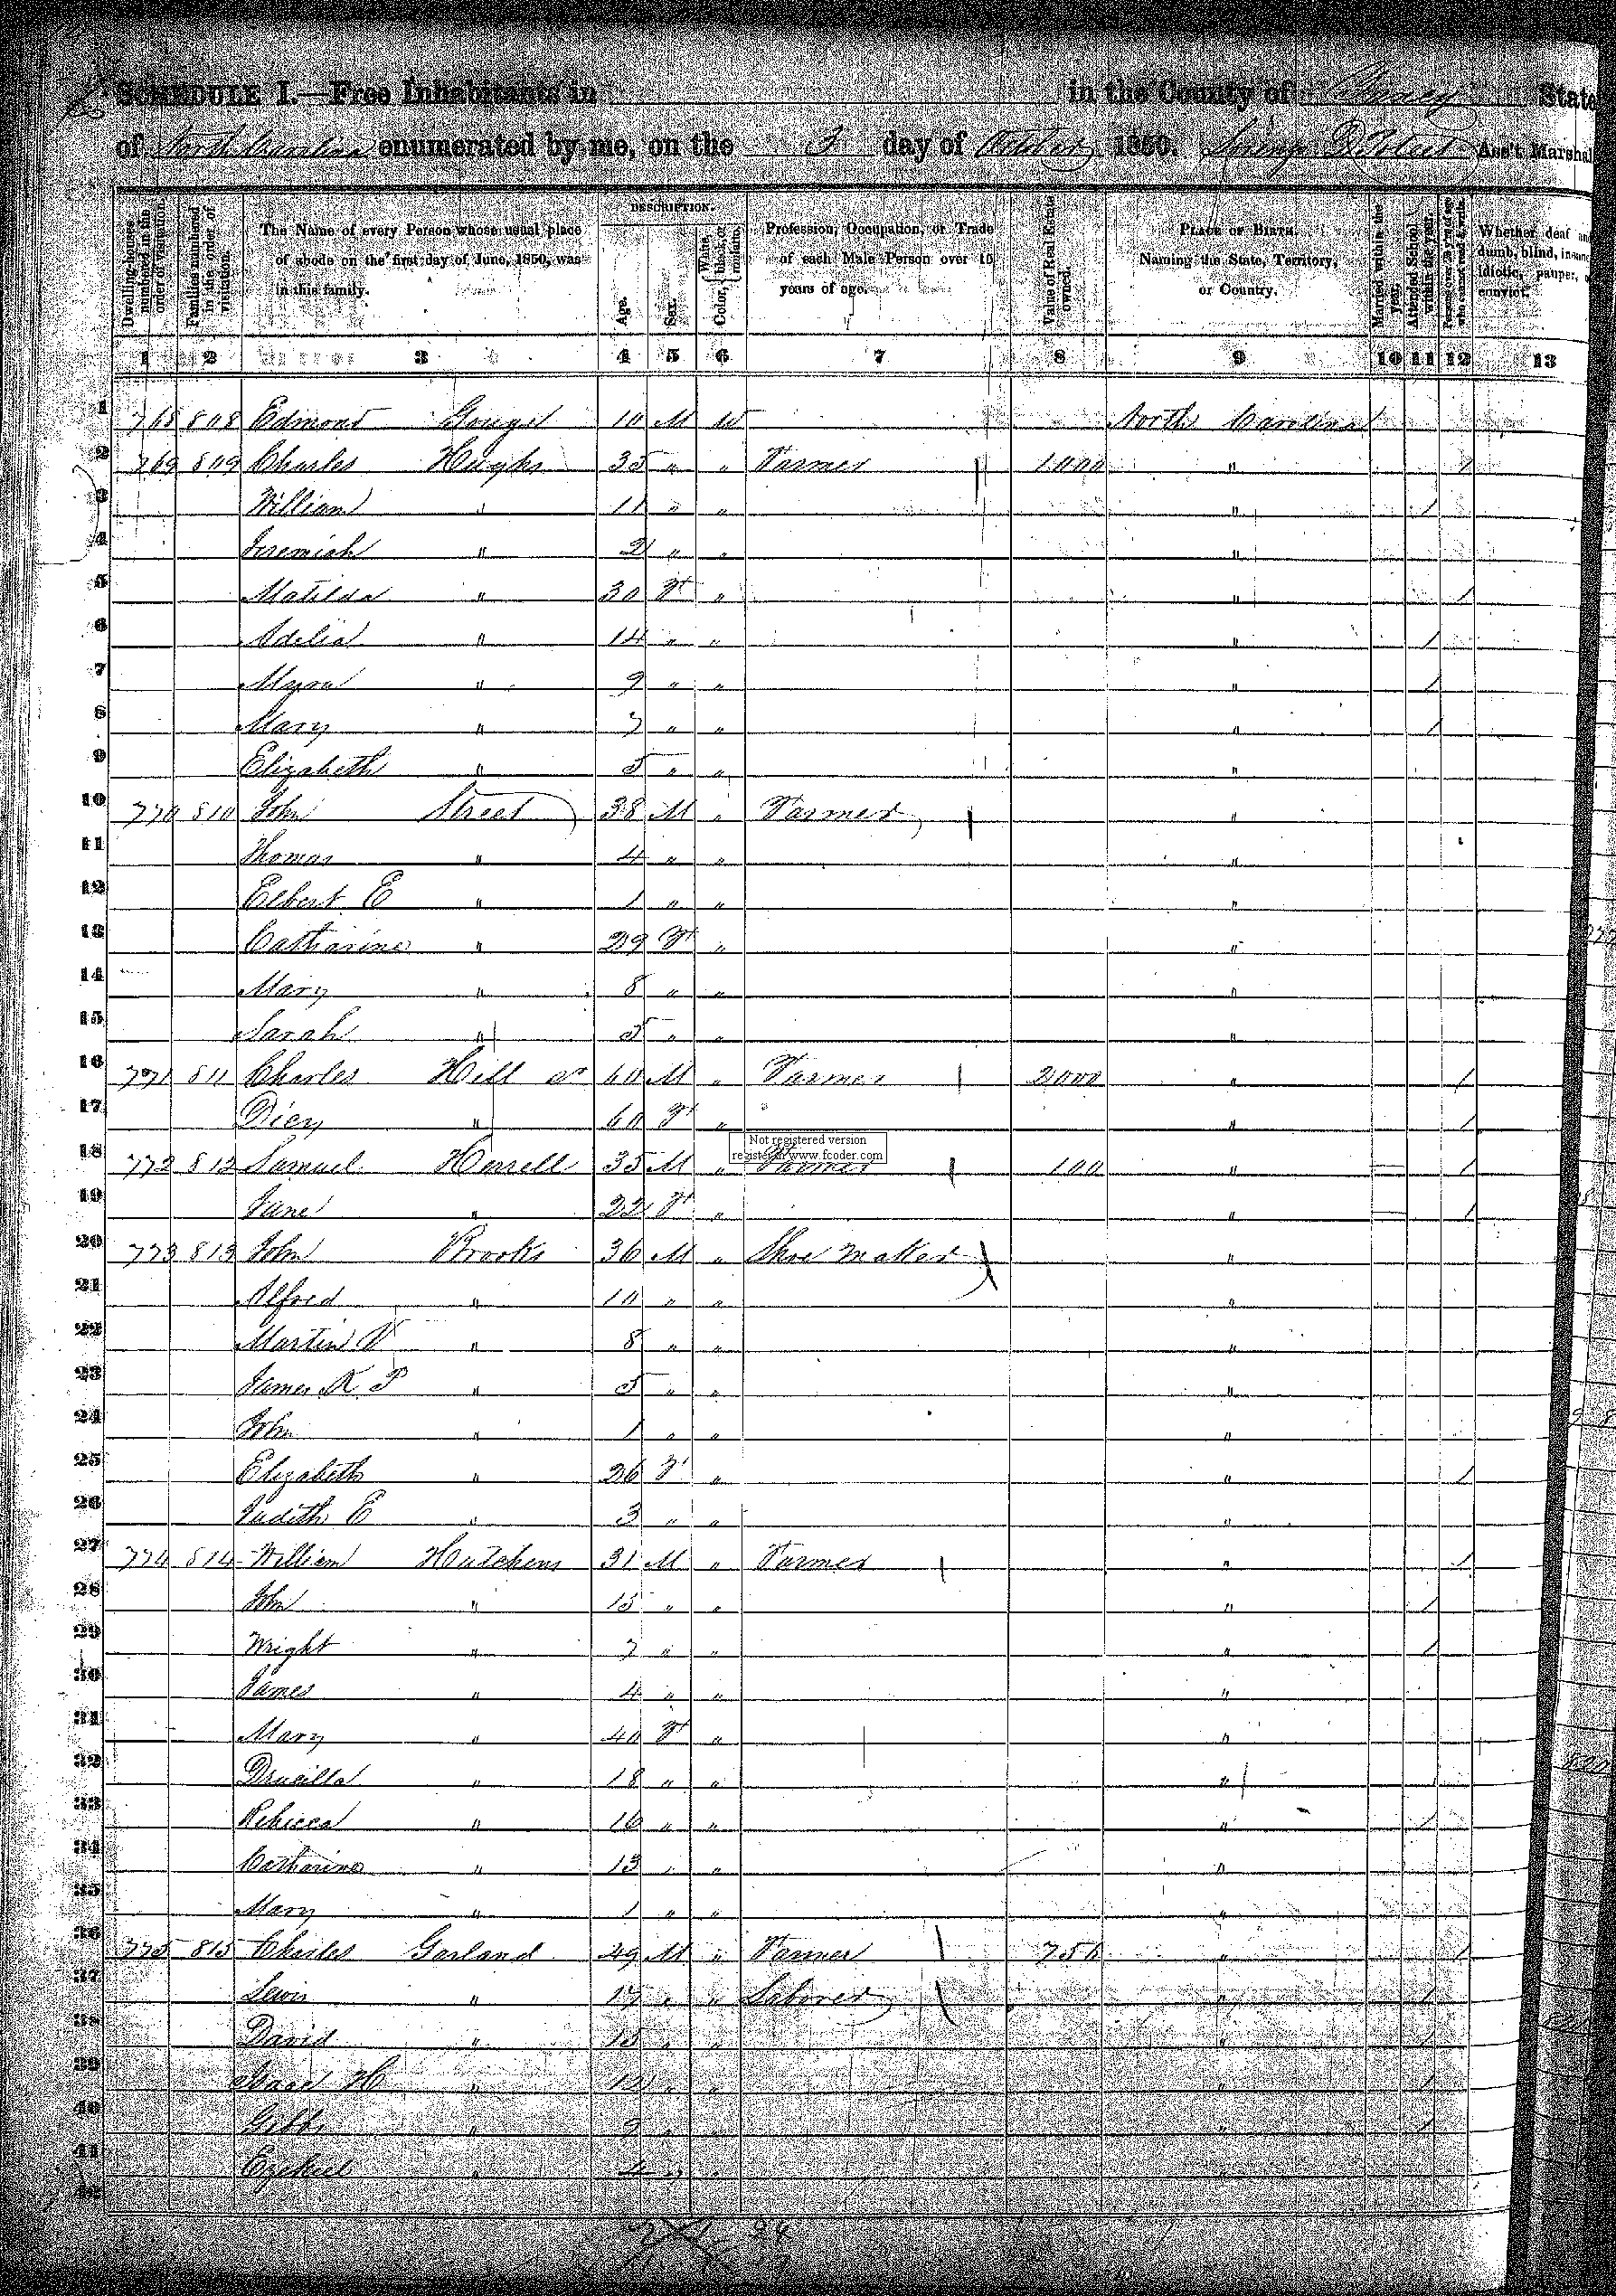 SCHEDULE I.—Free Inhabitants in in the County of Yancey State
of North Carolina enumerated by me, on the 3 day of October 1850. Ass't Marshal
DESCRIPTION.
Dwelling-houses numbered in the order of visitation.
Families numbered in the order of visitation.
The Name of every Person whose usual place of abode on the first day of June, 1850, was in this family.
Age.
Sex.
Color, {White, black, or mulatto.
Profession, Occupation, or Trade of each Male Person over 15 years of age.
Value of Real Estate owned.
PLACE OF BIRTH. Naming the State, Territory, or Country.
Married within the year.
Attended School within the year.
Persons over 20 y'rs of age who cannot read & write.
Whether deaf and dumb, blind, insane, idiotic, pauper, or convict.
1 2 3 4 5 6 7 8 9 10 11 12 13
1 768 808 Edmond Gouge 10 M W North Carolina
2 769 809 Charles Hughs 35 " " Farmer 1000 " 1
3 William " 11 " " " 1
4 Jeremiah " 2 " " "
5 Matilda " 30 F " " 1
6 Adelia " 14 " " " 1
7 Myra " 9 " " " 1
8 Mary " 7 " " " 1
9 Elizabeth " 5 " " "
10 770 810 John Street 38 M " Farmer "
11 Thomas " 4 " " "
12 Elbert E " 1 " " "
13 Catharine " 29 F " "
14 Mary " 8 " " "
15 Sarah " 5 " " "
16 771 811 Charles Hill Sr 60 M " Farmer 2000 " 1
17 Dicy " 60 F " " 1
Not registered version
register at www.fcoder.com
18 772 812 Samuel Harrell 35 M " Farmer 100 " 1
19 Jane " 22 F " " 1
20 773 813 John Brooks 36 M " Shoe maker "
21 Alfred " 10 " " "
22 Martin V " 8 " " "
23 James K P " 5 " " "
24 John " 1 " " "
25 Elizabeth " 26 F " " 1
26 Judith E " 3 " " "
27 774 814 William Hutchens 31 M " Farmer " 1
28 John " 15 " " " 1
29 Wright " 7 " " " 1
30 James " 4 " " "
31 Mary " 40 F " "
32 Drucilla " 18 " " " 1
33 Rebecca " 16 " " " 1
34 Catharine " 13 " " "
35 Mary " 1 " " "
36 775 815 Charles Garland 49 M " Farmer 750 " 1
37 Lewis " 17 " " Laborer " 1
38 David " 15 " " " 1
39 Isaac H " 12 " " " 1
40 Gibbs " 9 " " " 1
41 Ezekiel " 4 " " "